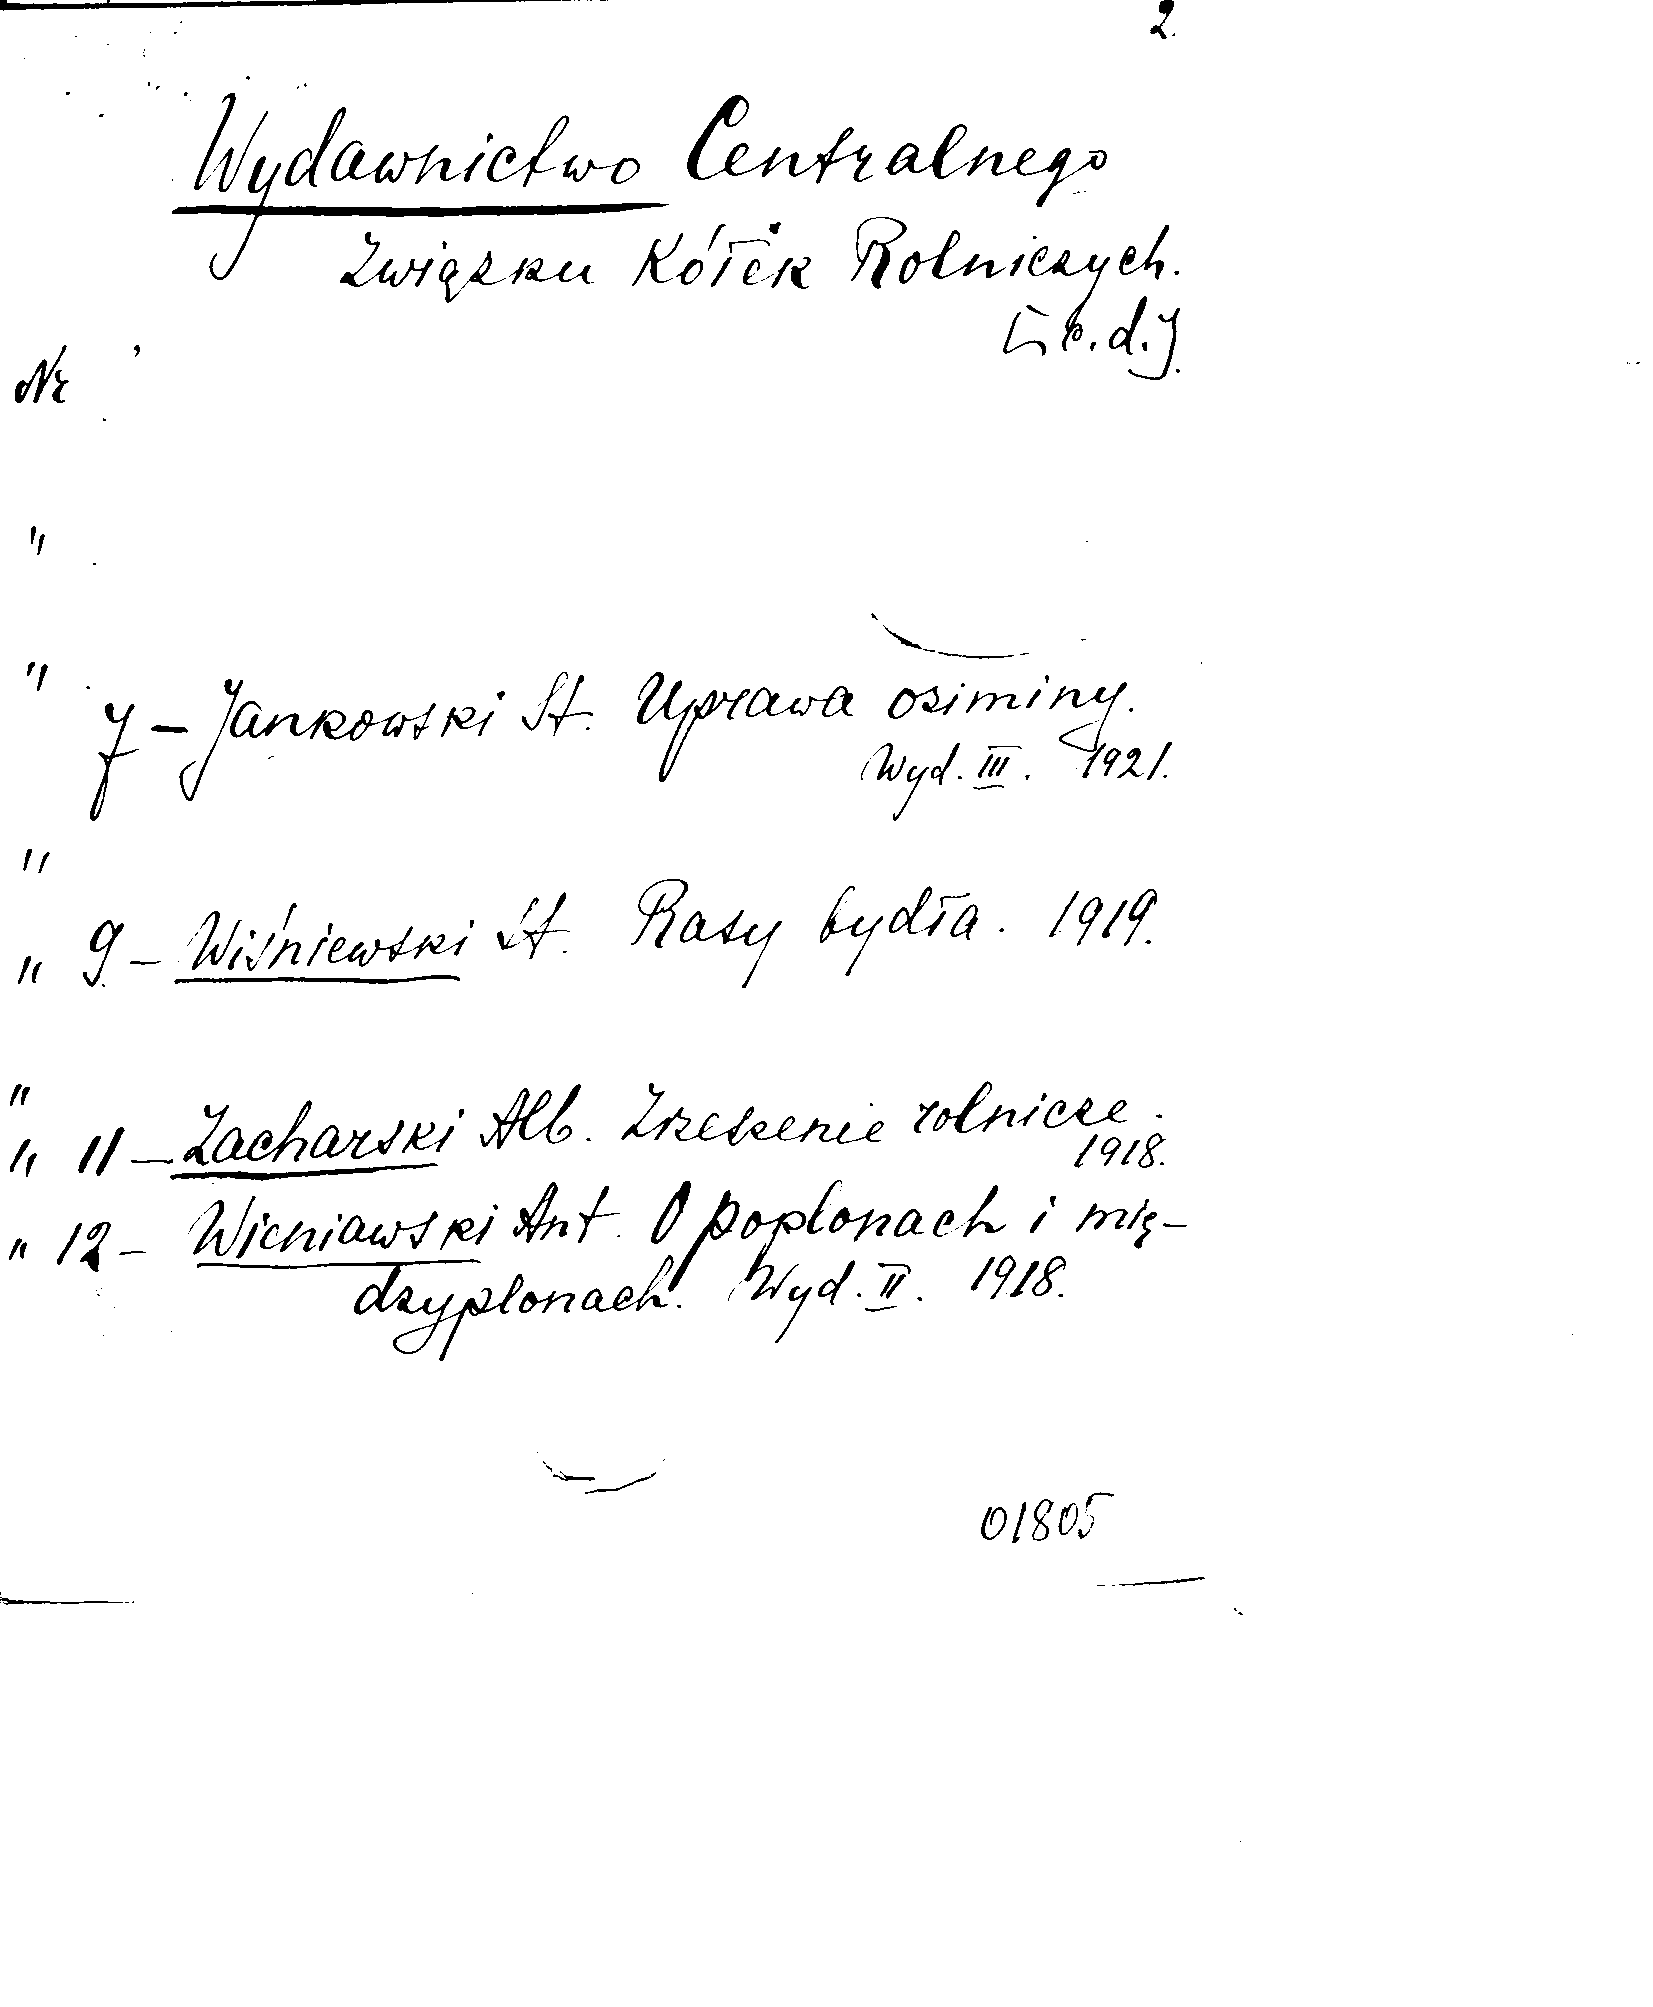 2.
Wydawnictwo Centralnego
Związku Kółek Rolniczych.
[c.d.]
Nr
"
"
7 – Jankowski St. Uprawa oziminy.
Wyd. III. 1921.
"
" 9 – Wiśniewski St. Rasy bydła. 1919.
"
" 11 – Zacharski Alb. Zrzeszenie rolnicze.
1918.
" 12 – Wieniawski Ant. O poplonach i mię-
dzyplonach. Wyd. II. 1918.
01805